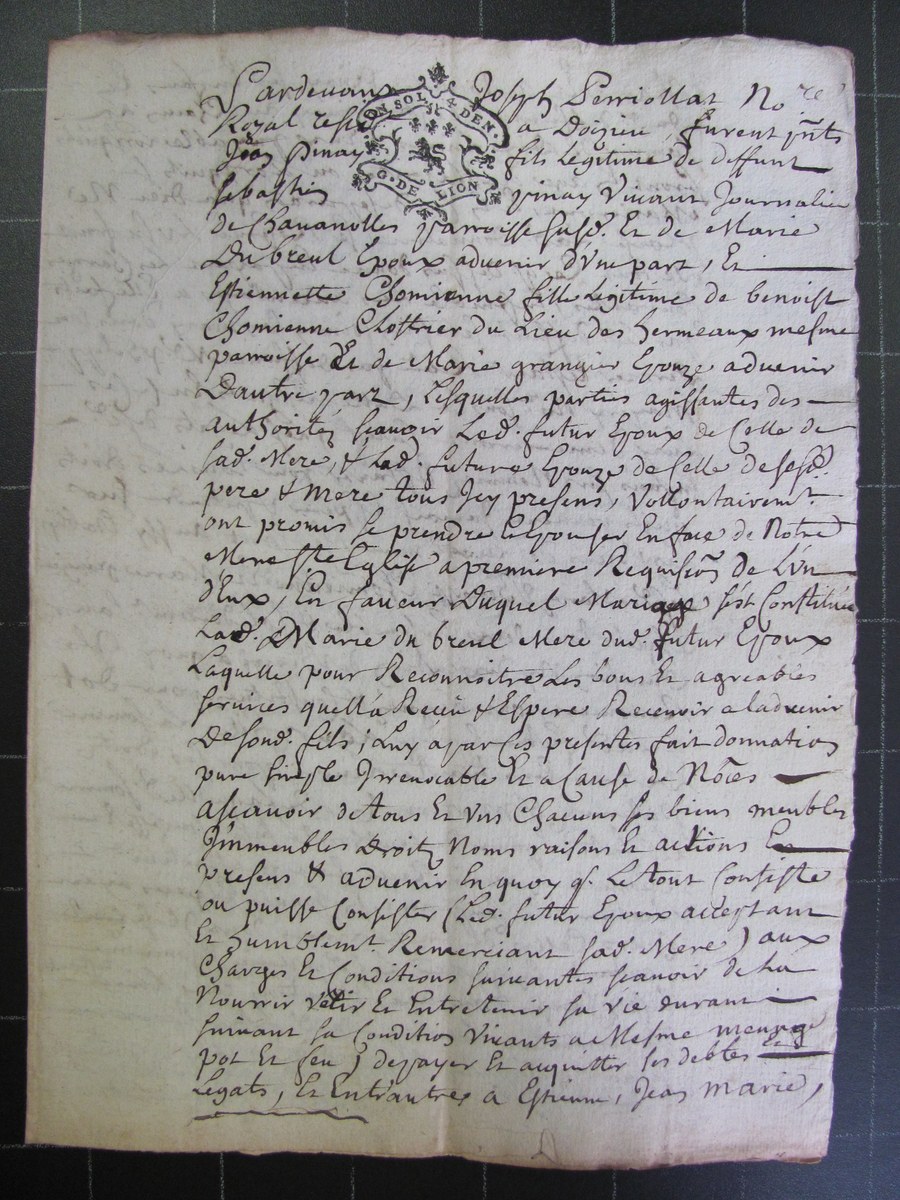 Pardevant Joseph Perriollat No.re
Royal reste a Doizieu, furent p̄nts
Jean Pinay fils Legitime de deffunt
sebastien pinay Vivant Journalier
ON SOL 4 DEN.
G. DE LION
de Chavanolles parroisse susd. Et de Marie
Du breul Epoux advenir d'Vne part, Et
Estiennette Chomienne fille Legitime de benoist
Chomienne Clottrier du Lieu des hermeaux mesme
parroisse Et de Marie grangier Epouze advenir
D'autre part, Lesquelles parties agissantes des
authoritéz scavoir Led. futur Epoux de Celle de
sad. Mere, & Lad. future Epouze de Celle de sesd.
pere & mere tous Icy presens, Vollontairemt.
ont promis se prendre & Epouser En face de Notre
Mere ste Eglise a premiere Requision de L'vn
d'Eux, En faveur Duquel Mariage s'est Constituée
Lad. Marie du breul Mere dud. futur Epoux
Laquelle pour Reconnoitre Les bons Et agreables
services quell'a Receu & Espere Recevoir a l'advenir
De sond. fils; Luy a par Ces presentes fait donnation
pure simple Irrevocable Et a Cause de Nōces
ascavoir de tous Et Vns Chacuns ses biens meubles
Immeubles Droitz Noms raisons Et actions
presens & advenir En quoy q. Le tout Consiste
ou puisse Consister (Led. futur Epoux acceptant
Et humblemt. Remerciant sad. Mere) aux
Charges Et Conditions suivantes scavoir de La
Nourrir vétir Et Entretenir sa vie durant
suivant sa Condition Vivants a Mesme menage
pot Et feu; de payer Et acquitter ses debtes Et
Legats, Et Entr'autres a Estienne, Jean marie,